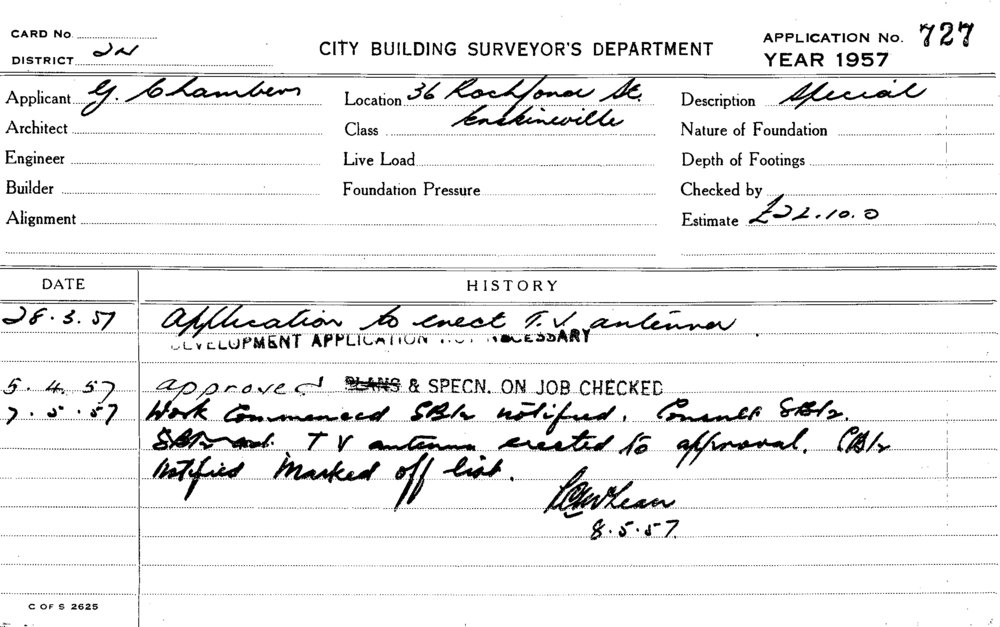 CARD No.
DISTRICT 2N
CITY BUILDING SURVEYOR'S DEPARTMENT
APPLICATION No. 727
YEAR 1957
Applicant G. Chambers
Location 36 Rochford St.
Erskineville
Description Special
Architect
Class
Nature of Foundation
Engineer
Live Load
Depth of Footings
Builder
Foundation Pressure
Checked by
Alignment
Estimate £22.10.0
DATE HISTORY
28.3.57 Application to erect T.V antenna.
DEVELOPMENT APPLICATION NOT NECESSARY
5.4.57 approved PLANS & SPECN. ON JOB CHECKED
7.5.57 Work Commenced notified.
T V antenna erected to approval.
notified Marked off list.
McLean
8.5.57.
C OF S 2625